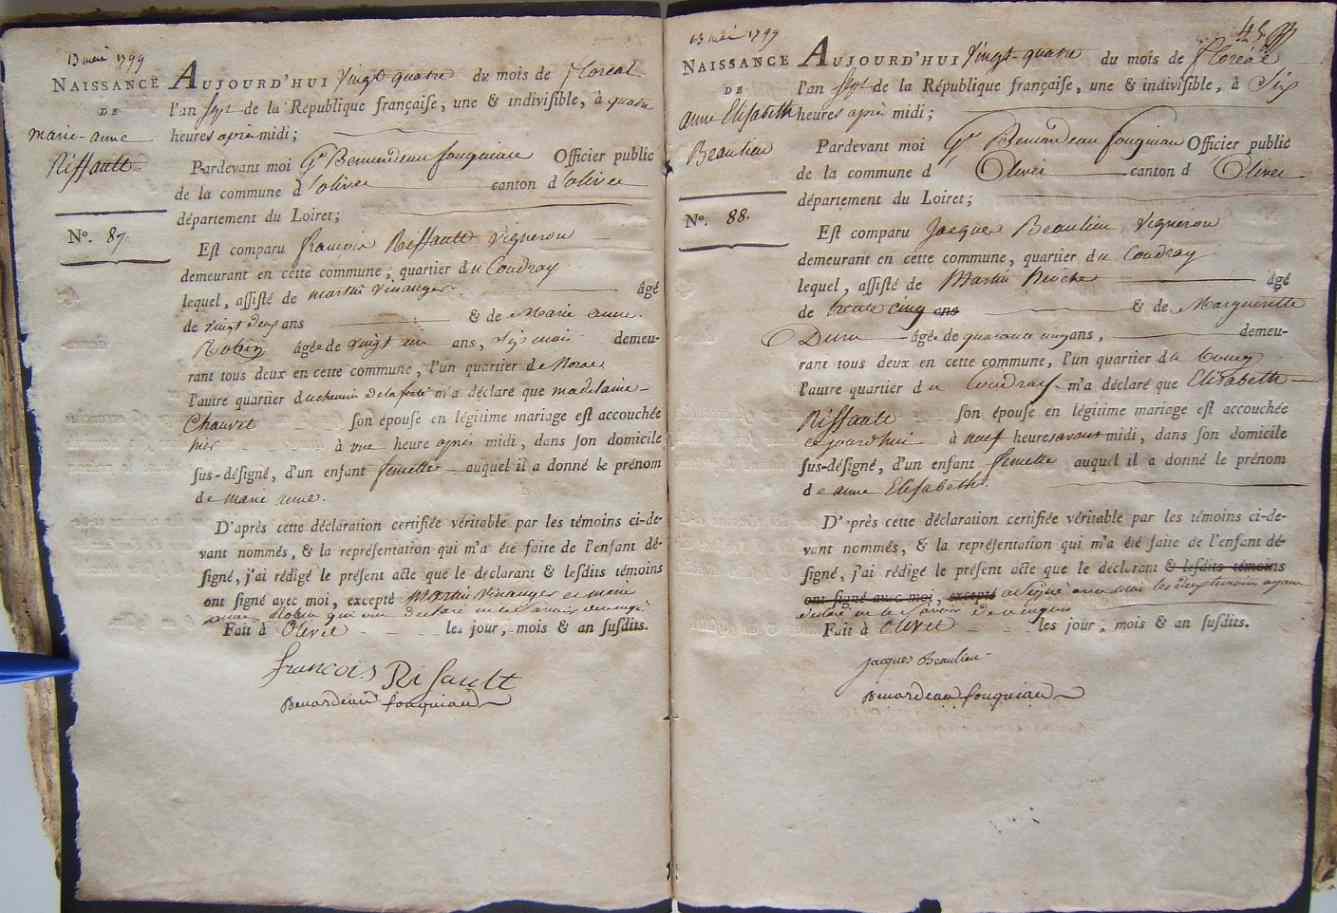 13 mai 1799
NAISSANCE
DE
marie-anne
Riffault
No. 87.
AUJOURD'HUI vingt-quatre du mois de floréal
l'an sept de la République françaiſe, une & indiviſible, à quatre
heures après midi;
Pardevant moi Officier public
de la commune d'olivet canton d'olivet
département du Loiret;
Eſt comparu françois Riffault vigneron
demeurant en cette commune, quartier du Coudray
lequel, aſſiſté de martin vinanger âgé
de vingt deux ans & de Marie anne
Robin âgée de vingt un ans, six mois demeu-
rant tous deux en cette commune, l'un quartier de
l'autre quartier du chemin de la ferté m'a déclaré que madelaine
Chauvet ſon épouse en légitime mariage eſt accouchée
hier à une heure après midi, dans ſon domicile
ſus-déſigné, d'un enfant femelle auquel il a donné le prénom
de marie anne.
D'après cette déclaration certifiée véritable par les témoins ci-de-
vant nommés, & la repréſentation qui m'a été faite de l'enfant dé-
ſigné, j'ai rédigé le préſent acte que le déclarant & leſdits témoins
ont ſigné avec moi, excepté Martin vinanger et marie
anne Robin qui ont déclaré ne le savoir
Fait à Olivet les jour, mois & an ſuſdits.
francois Rifault
Benardeau fouquiau
13 mai 1799
NAISSANCE
DE
anne Elisabeth
Beaulieu
No. 88.
AUJOURD'HUI vingt-quatre du mois de floréal
l'an sept de la République françaiſe, une & indiviſible, à Six
heures après midi;
Pardevant moi Officier public
de la commune d'Olivet canton d'Olivet
département du Loiret;
Eſt comparu Jacques Beaulieu vigneron
demeurant en cette commune, quartier du Coudray
lequel, aſſiſté de Martin âgé
de trente cinq ans & de Margueritte
âgée de ans, demeu-
rant tous deux en cette commune, l'un quartier du bourg
l'autre quartier du Coudray m'a déclaré que Elisabeth
Riffault ſon épouse en légitime mariage eſt accouchée
aujourd'hui à neuf heures avant midi, dans ſon domicile
ſus-déſigné, d'un enfant femelle auquel il a donné le prénom
de anne Elisabeth.
D'après cette déclaration certifiée véritable par les témoins ci-de-
vant nommés, & la repréſentation qui m'a été faite de l'enfant dé-
ſigné, j'ai rédigé le préſent acte que le déclarant & leſdits témoins
ont ſigné avec moi, excepté a signé avec moi les deux temoins ayant
déclaré ne le savoir
Fait à Olivet les jour, mois & an ſuſdits.
jacques Beaulieu
Benardeau fouquiau